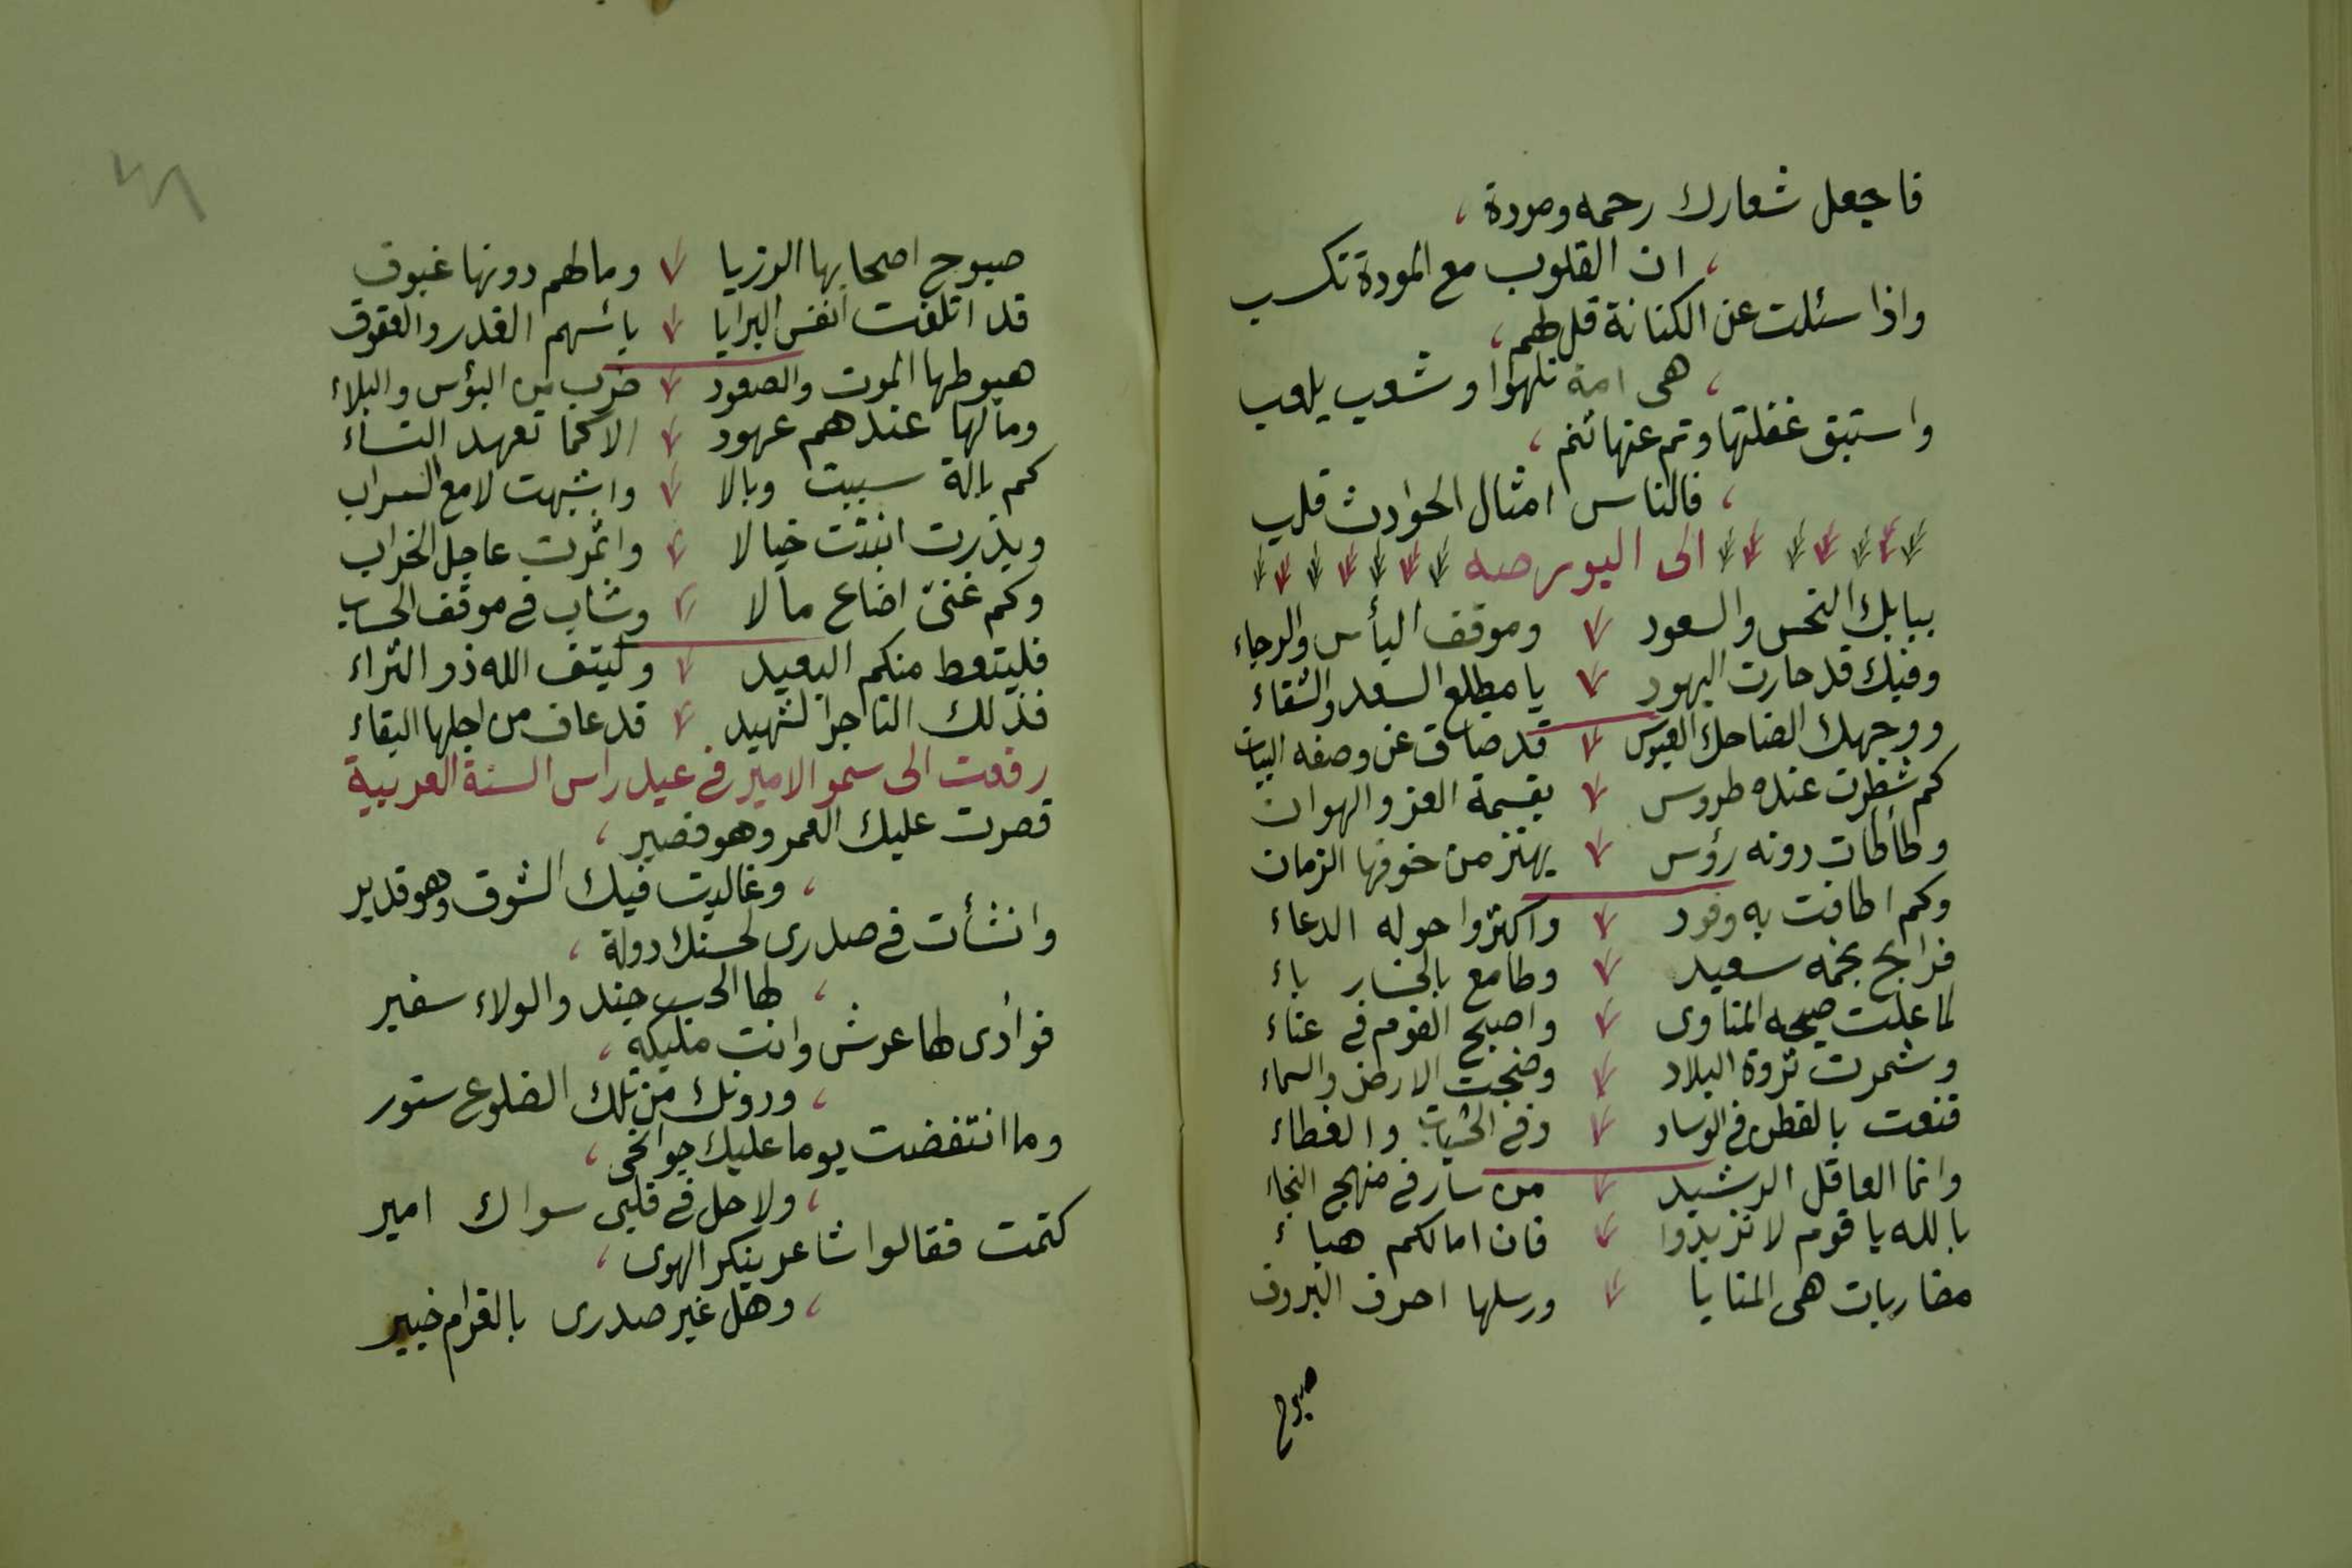 فاجعل شعارك رحمه ومودة ،
، ان القلوب مع المودة تكسب
واذا سئلت عن الكنانة قل لهم ،
، هى امة تلهوا وشعب يلعب
واستبق غفلتها ونم عنها تنم ،
، فالناس امثال الحوادث قلب
الى البورصه
ببابك النحس والسعود وموقف اليأس والرجاء
وفيك قد حارت اليهود يا مطلع السعد والشقاء
ووجهك الضاحك العبوس قد ضاق عن وصفه البيان
كم سطرت عنده طروس بقسمة العز والهوان
وطأطات دونه رؤس يهتز من خوفها الزمان
وكم اطافت به وفود واكثروا حوله الدعاء
فرابح نجمه سعيد وطامع بالخسار باء
لما علت صيحه المناوى واصبح القوم فى عناء
وشمرت ثروة البلاد وضجت الارض والسماء
قنعت بالقطن فى الوساد وفى الحشيات والغطاء
وانما العاقل الرشيد من سار فى منهج النجاء
بالله يا قوم لا تزيدوا فان امالكم هباء
مضاربات هى المنايا ورسلها احرف البروق
صبوح
صبوح اصحابها الرزيا ومالهم دونها غبوق
قد اتلفت انفس البرايا باسهم الغدر والعقوق
هبوطها الموت والصعود ضرب من البؤس والبلاء
ومالها عندهم عهود الا كما تعهد النساء
كم بالة سببت وبالا واشبهت لامع السراب
وبذرت انبتت خيالا واثمرت عاجل الخراب
وكم غنىّ اضاع مالا وشاب فى موقف الحساب
فليتعظ منكم البعيد وليتق الله ذو الثراء
فذلك التاجر الشهيد قد عاف من اجلها البقاء
رفعت الى سمو الامير فى عيد راس السنة العربية
قصرت عليك العمر وهو قصير ،
، وغالبت فيك الشوق وهو قدير
وانشأت فى صدرى لحسنك دولة ،
، لها الحب جند والولاء سفير
فوأدى لها عرش وانت مليكه ،
، ودونك من تلك الضلوع ستور
وما انتفضت يوما عليك جوانحى ،
، ولا حل فى قلبى سواك امير
كتمت فقالوا شاعر ينكر الهوى ،
، وهل غير صدرى بالغرام خبير